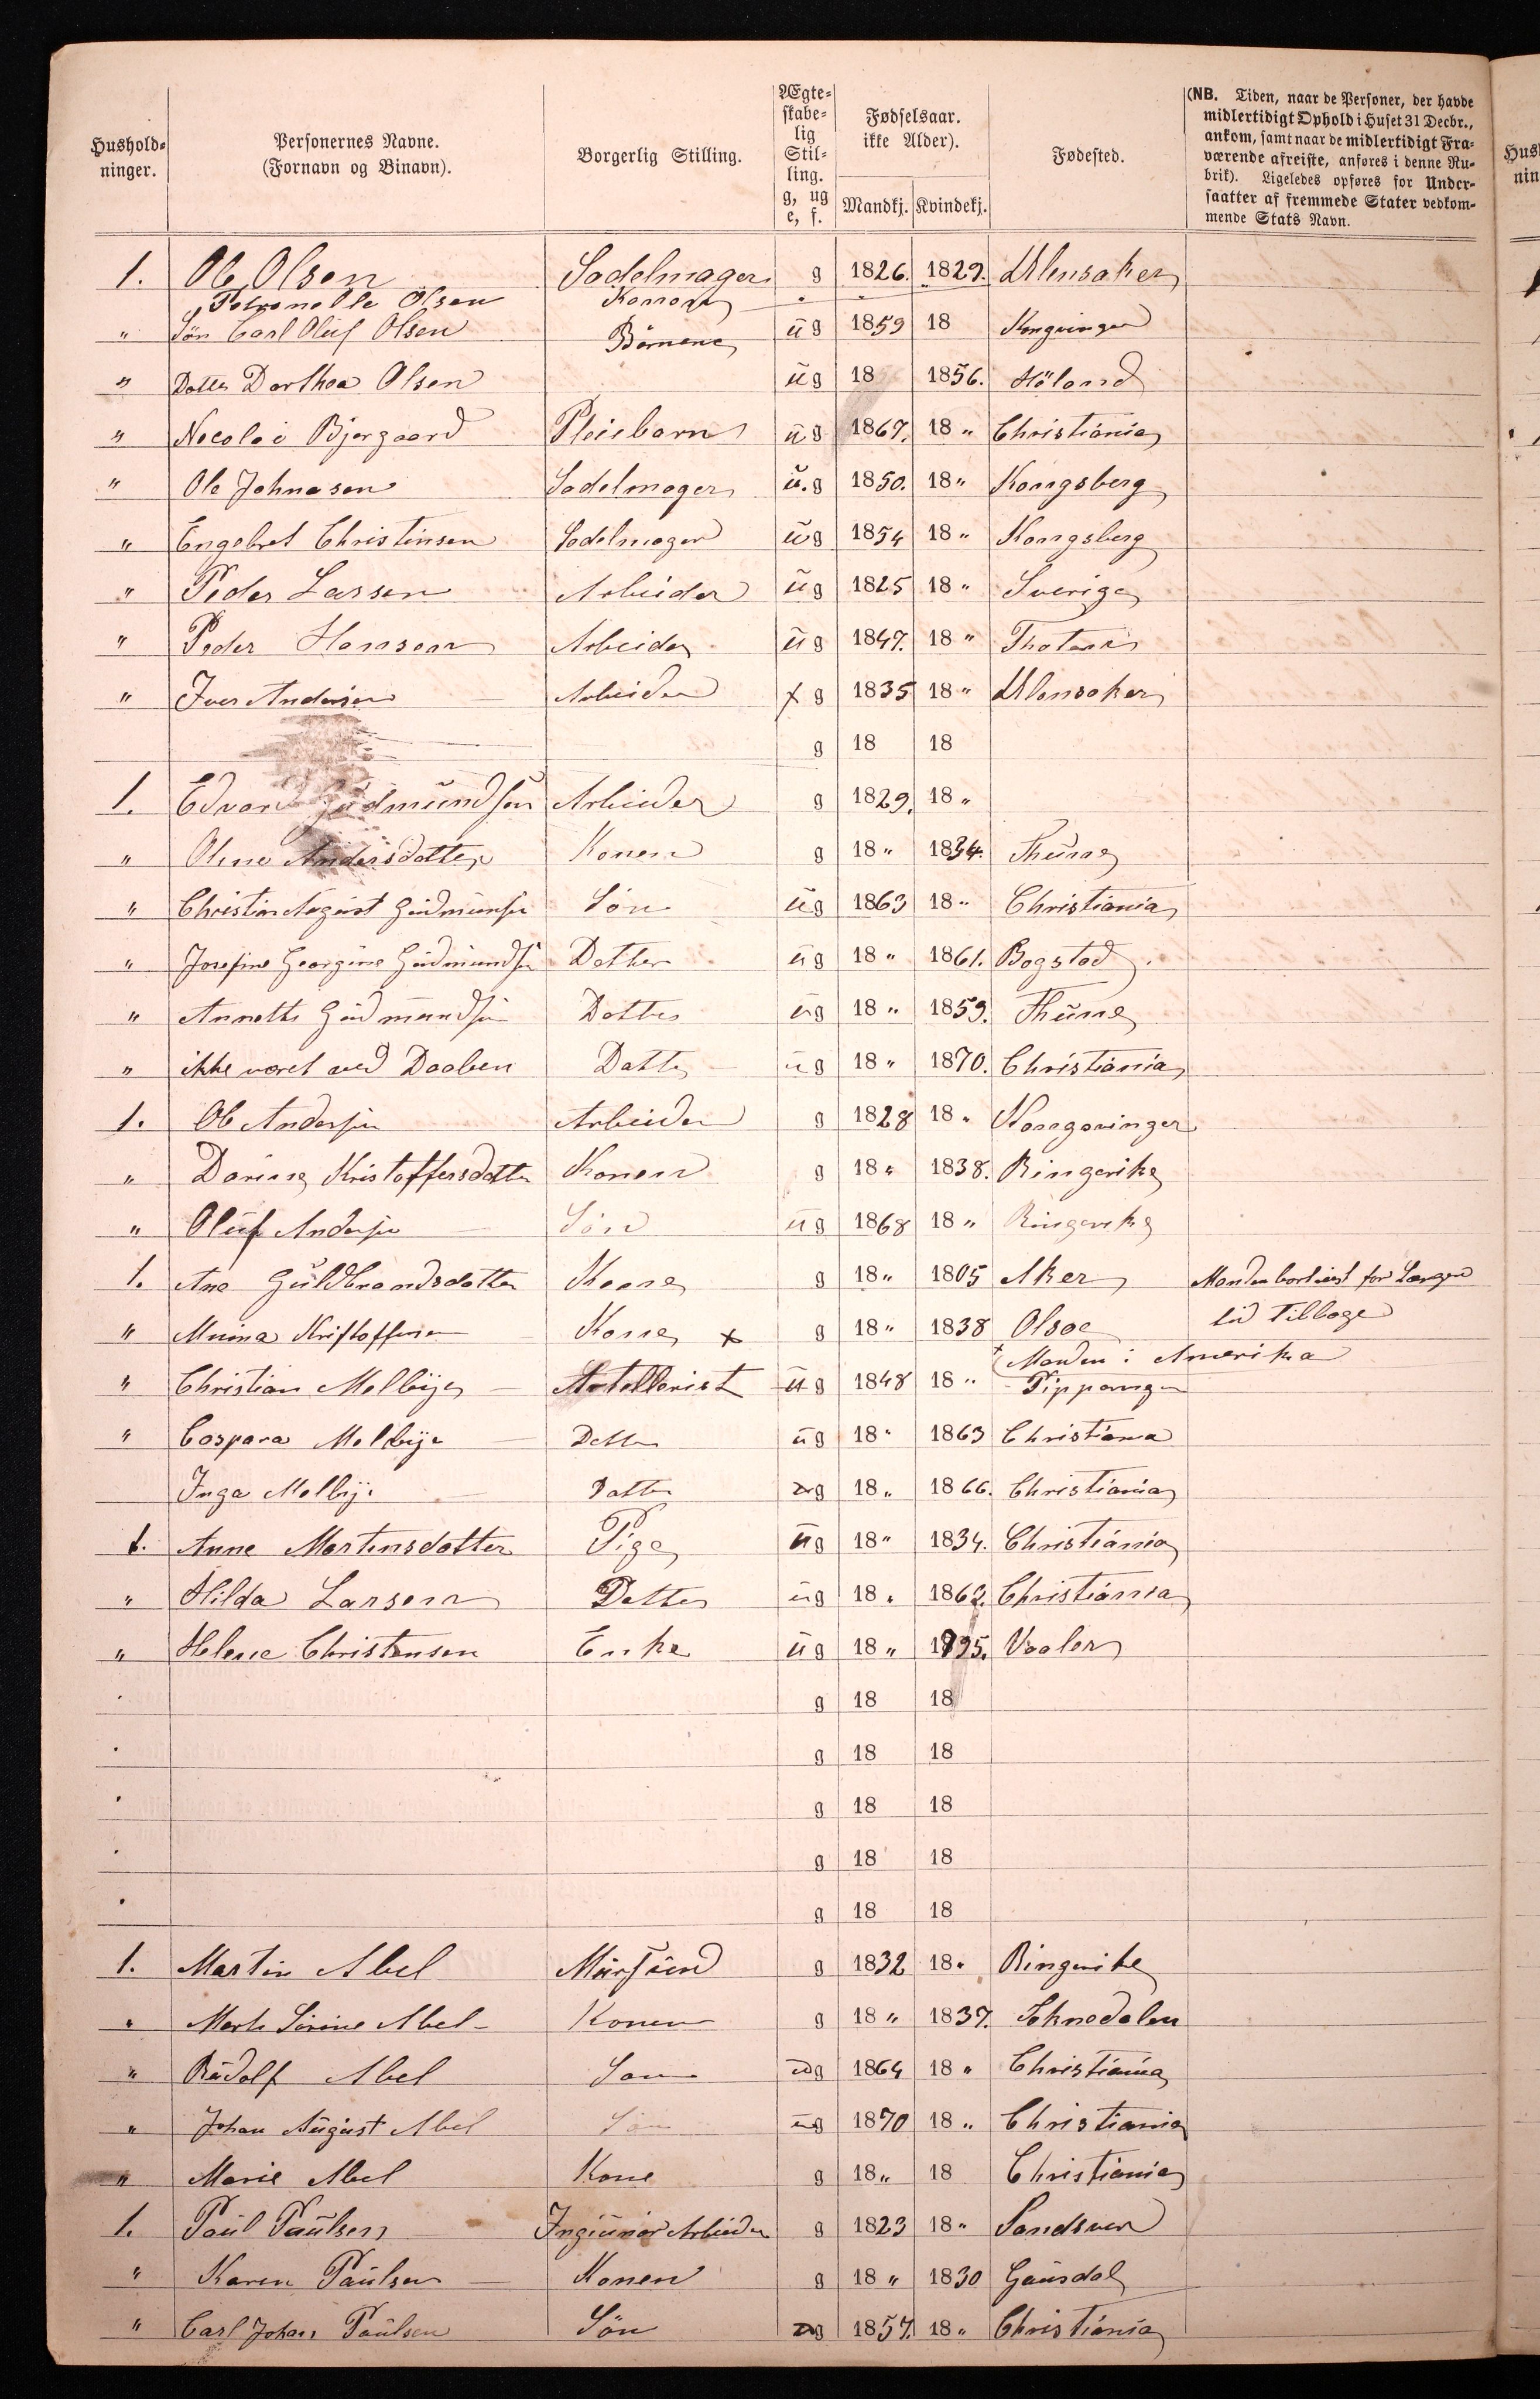 Hushold-
ninger.
Personernes Navne.
(Fornavn og Binavn).
Borgerlig Stilling.
Ægte-
skabe-
lig
Stil-
ling.
g, ug
e, f.
Fødselsaar.
ikke Alder).
Mandkj. Kvindekj.
Fødested.
(NB. Tiden, naar de Personer, der havde
midlertidigt Ophold i Huset 31 Decbr.,
ankom, samt naar de midlertidigt Fra-
værende afreiste, anføres i denne Ru-
brik). Ligeledes opføres for Under-
saatter af fremmede Stater vedkom-
mende Stats Navn.
1. Ole Olsen Sadelmager g 1826. 1829. Ullensaker
Petronelle Olsen Konen
" Søn Carl Oluf Olsen Børnene ug 1859 18 Kongvinger
" Datter Dorthea Olsen ug 18 1856. Høland
" Nicolai Bjergaard Pleiebarn ug 1867. 18 " Christiania
" Ole Johnesen Sadelmager u.g 1850. 18 " Kongsberg
" Engebret Christensen Sadelmager ug 1854 18 " Kongsberg
" Peder Larsen Arbeider ug 1825 18 " Sverige
" Peder Hansen Arbeider ug 1847. 18 " Thoten
" Iver Andersen Arbeider f g 1835 18 " Ullensaker
g 18 18
1. Edvard Gudmundsen Arbeider g 1829. 18 "
" Oline Andersdatter Konen g 18 " 1834. Thune
" Christian August Gudmunsen Søn ug 1863 18 " Christiania
" Josefine Georgine Gudmundsen Datter ug 18 " 1861. Bogstad
" Annette Gudmundsen Datter ug 18 " 1859. Thune
" ikke været ved Daaben Datter ug 18 " 1870. Christiania
1. Ole Andersen Arbeider g 1828 18 " Kongsvinger
" Dorine Kristoffersdatter Konen g 18 " 1838. Ringerike
" Oluf Andersen Søn ug 1868 18 " Ringerike
1. Ane Guldbrandsdatter Kone g 18 " 1805 Aker Manden bortreist for Længere
tid tilbage
" Mina Kristoffersen Kone x g 18 " 1838 Olsoe
x Manden i Amerika
" Christian Melbye Artellerist ug 1848 18 " Pippervigen
" Caspara Melbye Datter ug 18 " 1863 Christiania
Inga Melbye Datter ug 18 " 1866. Christiania
1. Anne Martinsdatter Pige ug 18 " 1834. Christiania
" Hilda Larsen Datter ug 18 " 1862. Christiania
" Helene Christensen Enke ug 18 " 1795. Vaaler
g 18 18
g 18 18
g 18 18
g 18 18
g 18 18
1. Martin Abel Mursvend g 1832 18 " Ringerike
" Marte Sirine Abel Konen g 18 " 1837. Soknedalen
" Rudolf Abel Søn ug 1864 18 " Christiania
" Johan August Abel Søn ug 1870 18 " Christiania
" Marie Abel Kone g 18 " 18 Christiania
1. Paul Paulsen Ingiuniør Arbeider g 1823 18 " Sandsver
" Karen Paulsen Konen g 18 " 1830 Gausdal
" Carl Johan Paulsen Søn ug 1857. 18 " Christiania